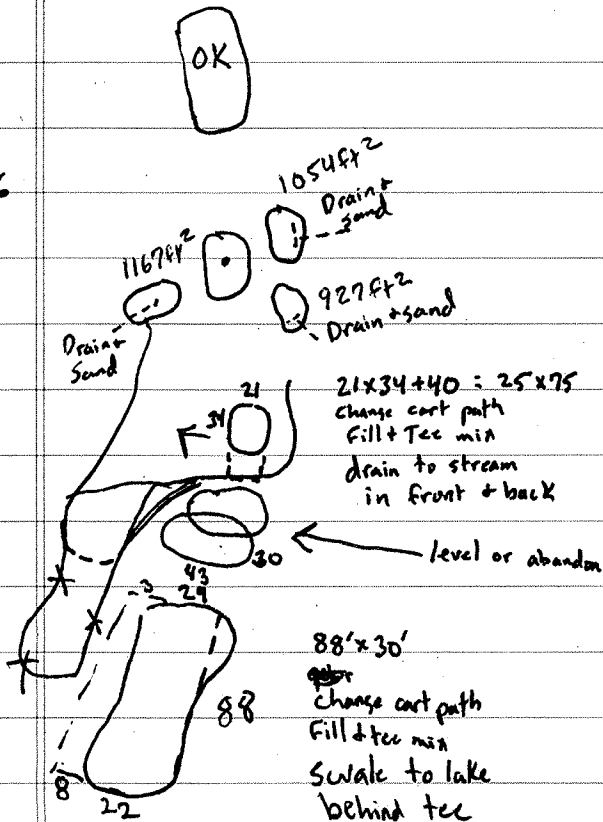 OK
1054ft²
Drain +
sand
1167ft²
Drain +
Sand
927ft²
Drain + sand
21
34
21x34+40 = 25x75
change cart path
Fill + Tee mix
drain to stream
in front + back
30
level or abandon
43
3
24
88
8
22
88'x30'
change cart path
Fill + tee mix
Swale to lake
behind tee